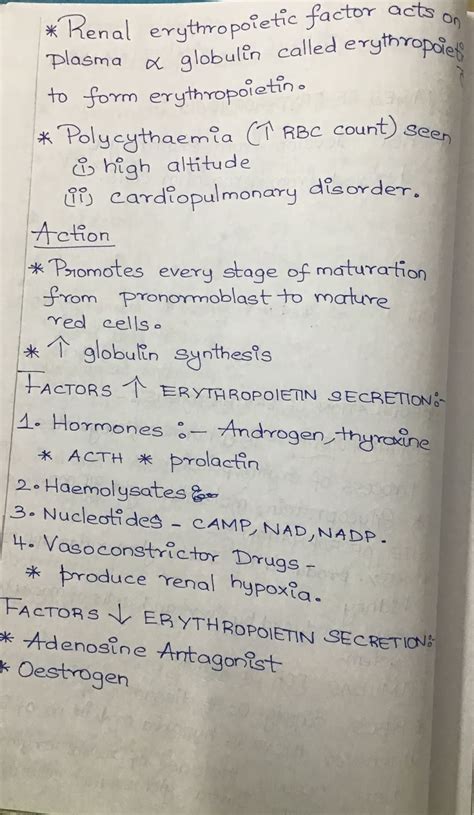 * Renal erythropoietic factor acts on
plasma α globulin called erythropoie
to form erythropoietin.
* Polycythaemia (↑ RBC count) seen
(i) high altitude
(ii) cardiopulmonary disorder.
Action
* Promotes every stage of maturation
from pronormoblast to mature
red cells.
* ↑ globulin synthesis
FACTORS ↑ ERYTHROPOIETIN SECRETION:-
1. Hormones :- Androgen, thyroxine
* ACTH * prolactin
2. Haemolysates
3. Nucleotides - CAMP, NAD, NADP.
4. Vasoconstrictor Drugs -
* produce renal hypoxia.
FACTORS ↓ ERYTHROPOIETIN SECRETION:-
* Adenosine Antagonist
* Oestrogen